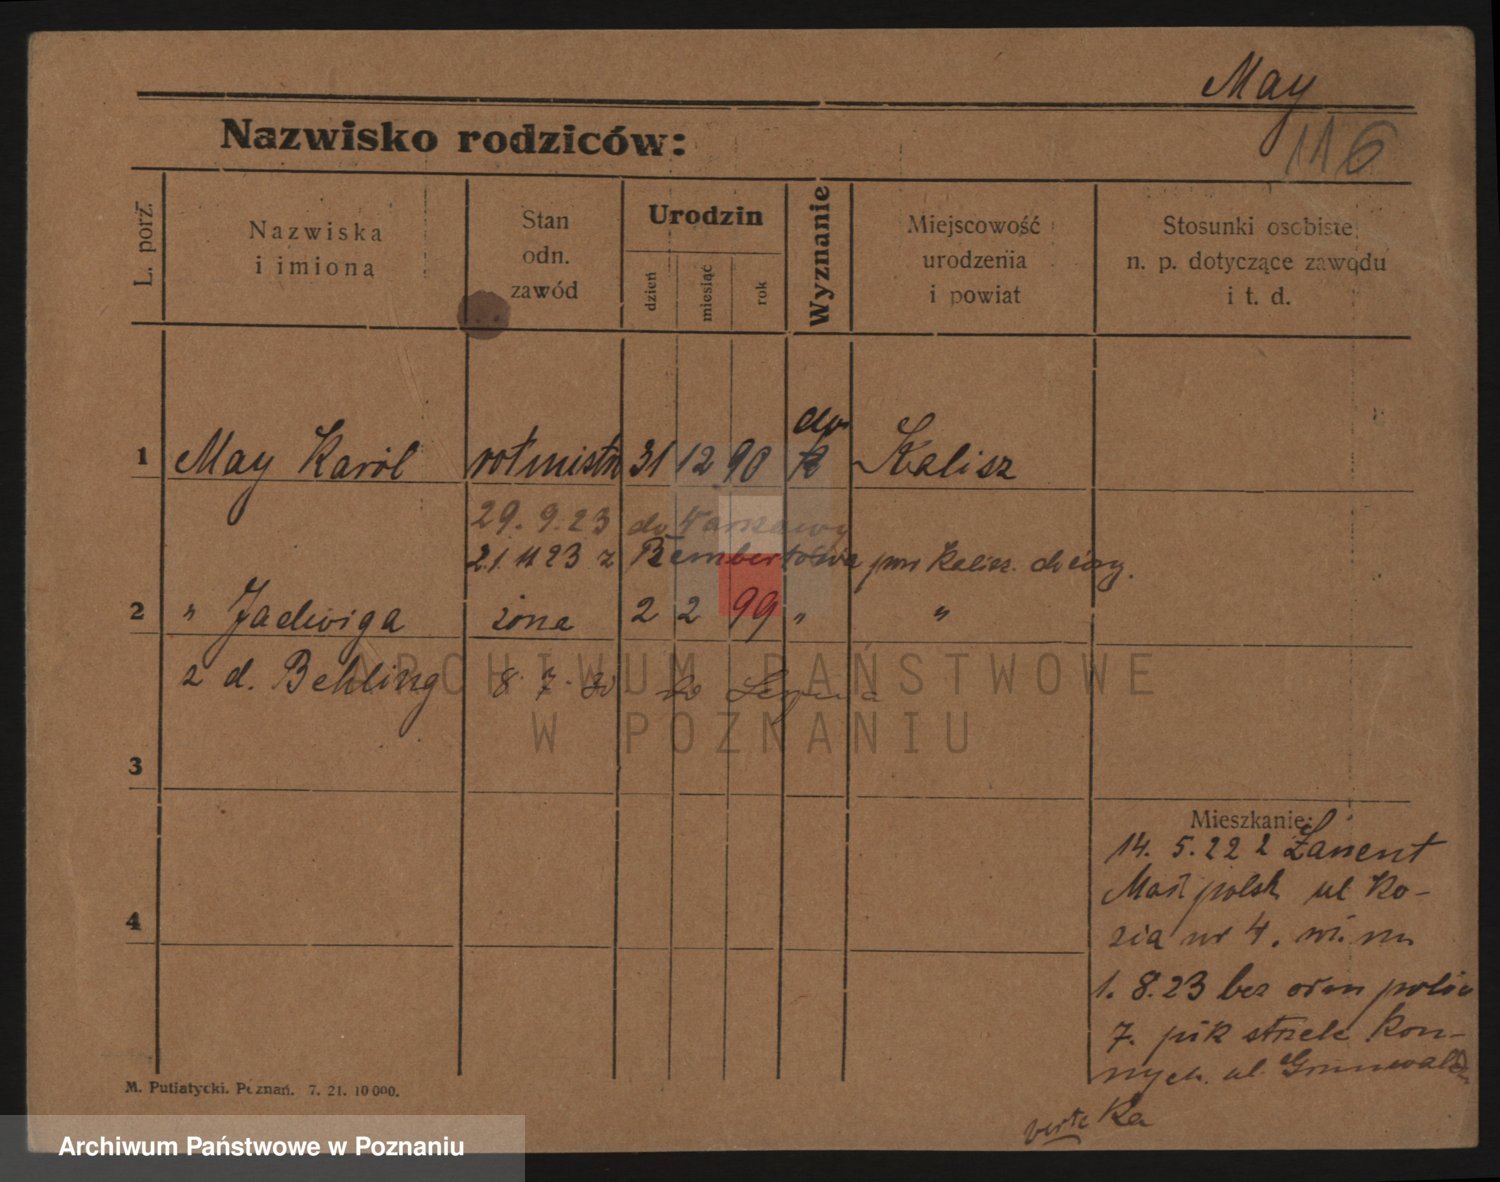 May
116
Nazwisko rodziców:
L. porz.
Nazwiska
i imiona
Stan
odn.
zawód
Urodzin
dzień
miesiąc
rok
Wyznanie
Miejscowość
urodzenia
i powiat
Stosunki osobiste,
n. p. dotyczące zawodu
i t. d.
1 May Karól rotmistrz 31 12 90 Kalisz
29. 9. 23 do Warszawy
21. 11 23 z Rembertowa pow Kalisz.
2 " Jadwiga żona 2 2 99 " "
z d. Behling 8. 7. 30 do
3
4
Mieszkanie:
14. 5. 22 z Łańcut
Małpolsk ul Ko-
zia nr 4.
1. 8. 23 bez
7. pułk strzelc kon-
nych. ul. Grunwaldz
ka
verte
M. Putiatycki. Poznań. 7. 21. 10000.
ARCHIWUM PAŃSTWOWE
W POZNANIU
Archiwum Państwowe w Poznaniu